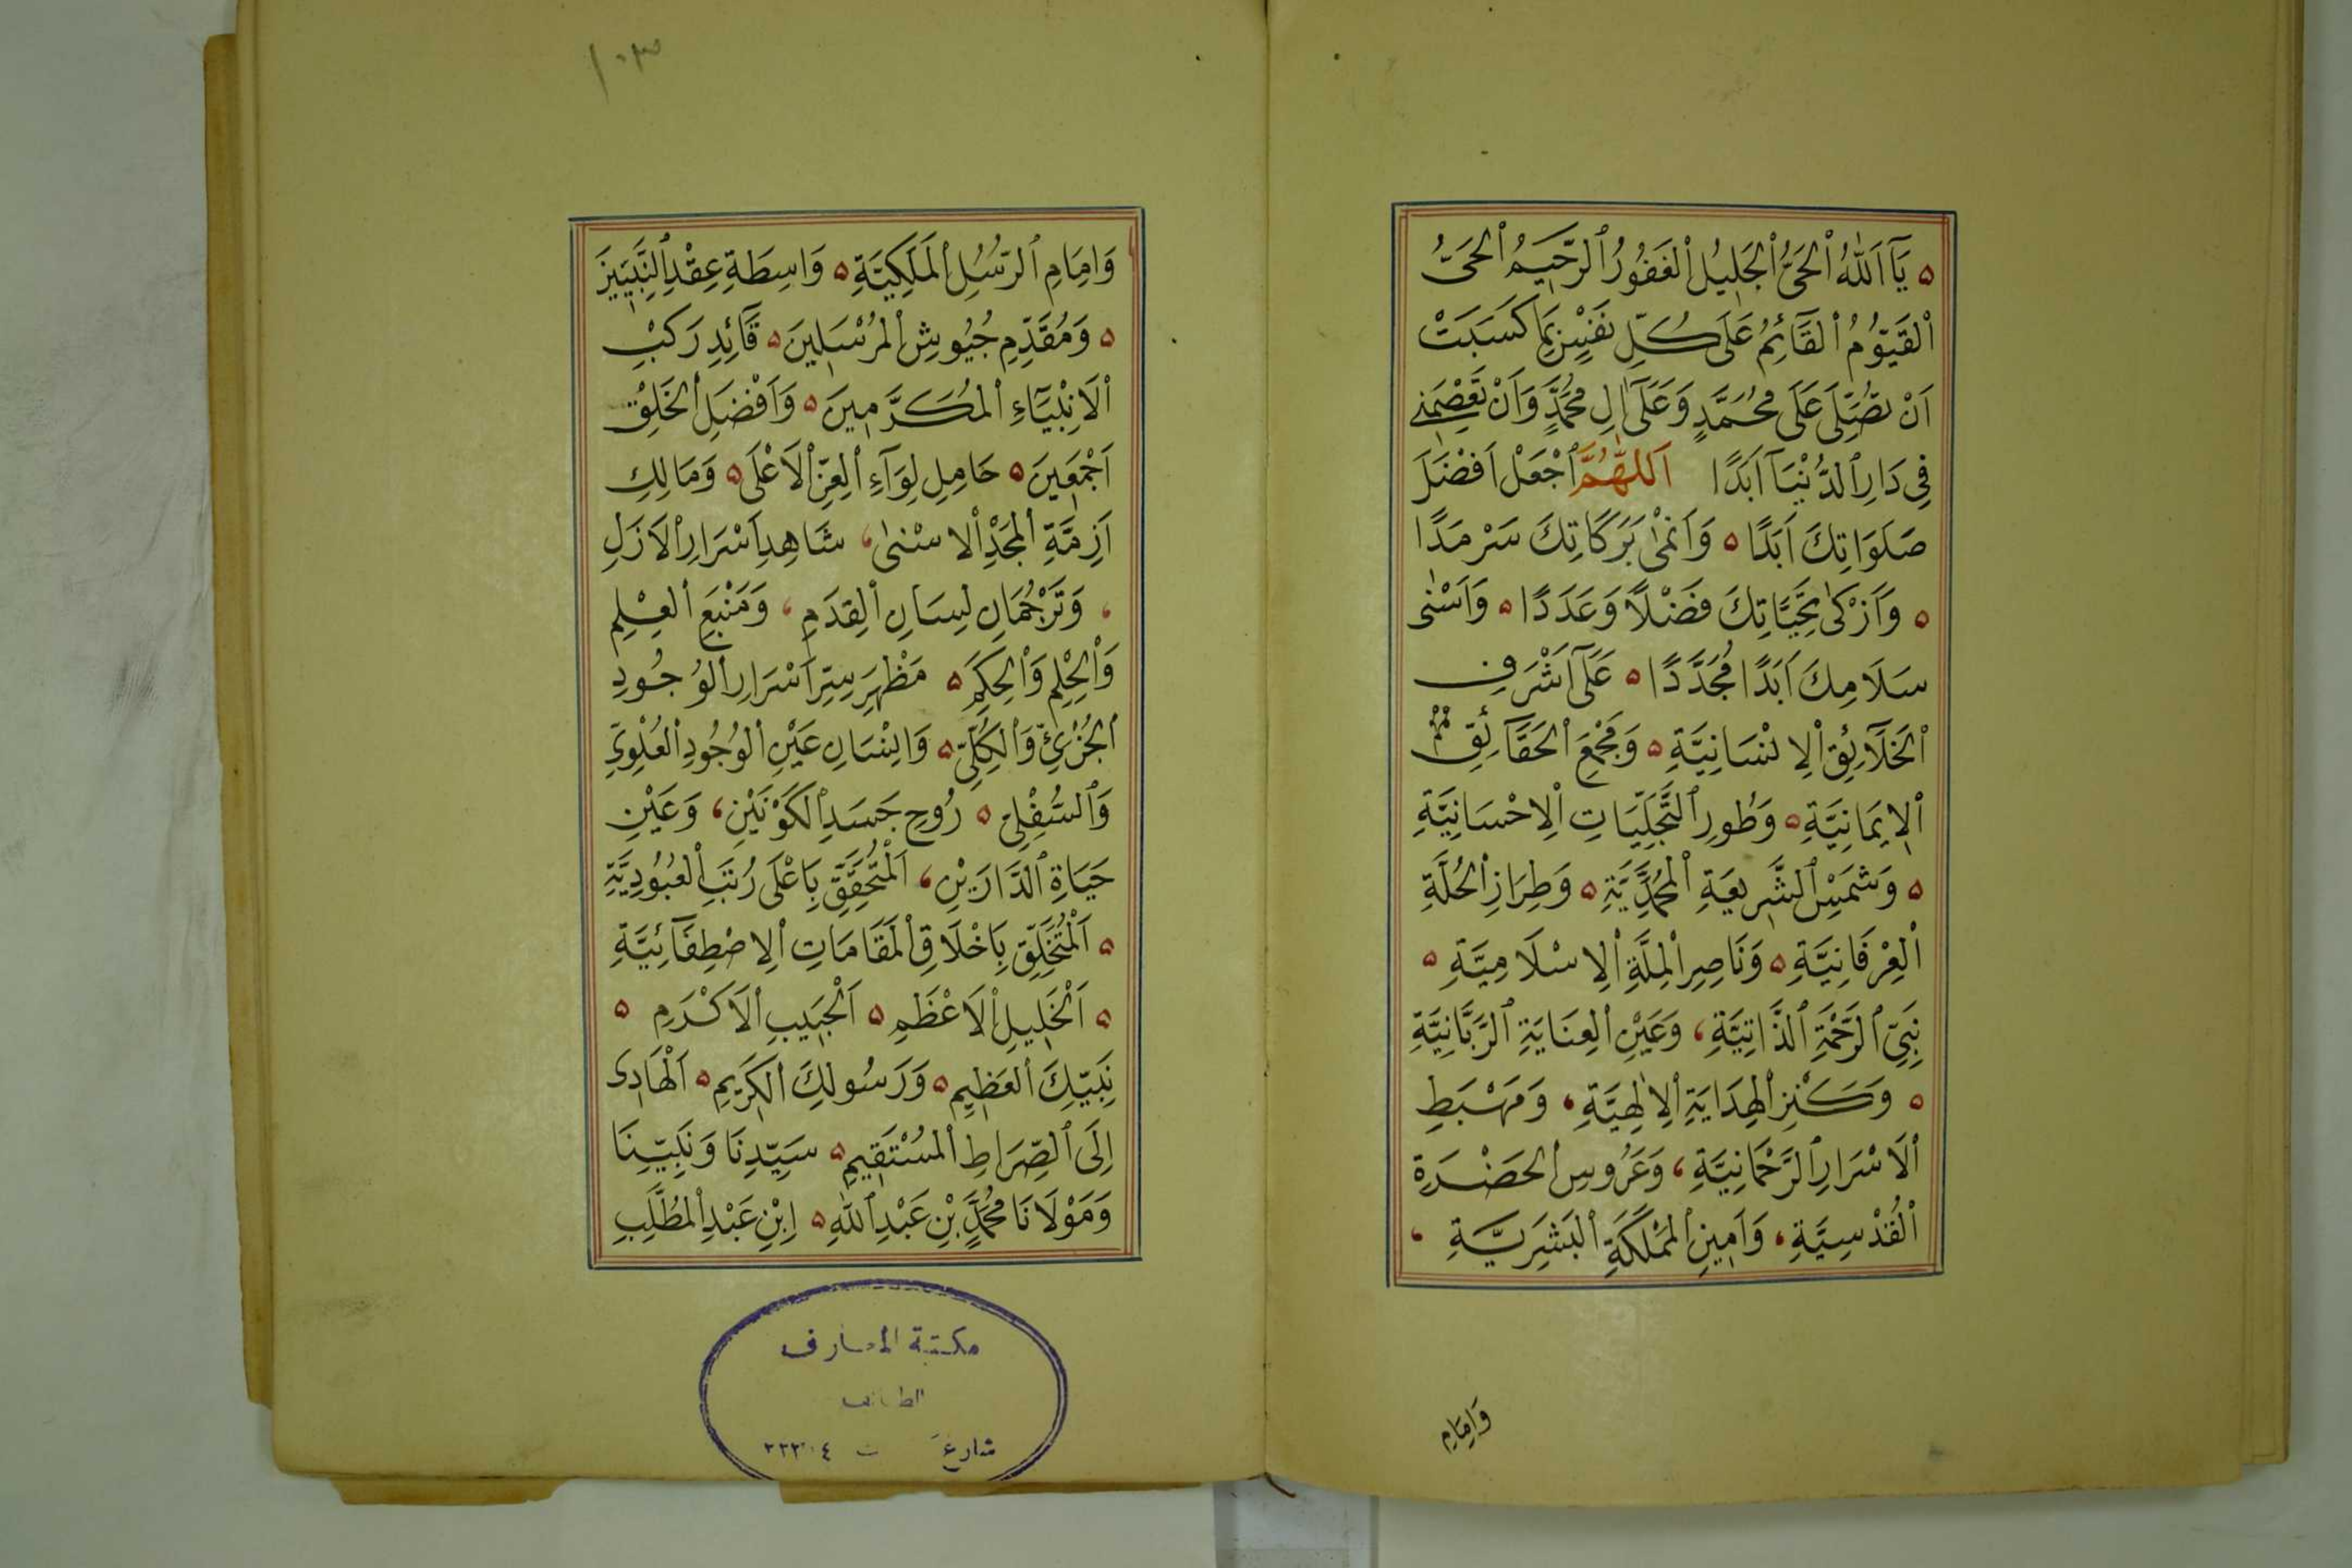 يَآ اَللّٰهُ ٱلْحَىُّ ٱلْجَلِيلُ ٱلْغَفُورُ ٱلرَّحِيمُ ٱلْحَىُّ
ٱلْقَيُّومُ ٱلْقَآئِمُ عَلَى كُلِّ نَفْسٍ بِمَا كَسَبَتْ
اَنْ تُصَلِّىَ عَلَى مُحَمَّدٍ وَعَلَى اٰلِ مُحَمَّدٍ وَاَنْ تَعْصِمَنِى
فِى دَارِ ٱلدُّنْيَآ اَبَدًا اَللّٰهُمَّ ٱجْعَلْ اَفْضَلَ
صَلَوَاتِكَ اَبَدًا ۵ وَاَنْمٰى بَرَكَاتِكَ سَرْمَدًا
۵ وَاَزْكٰى تَحِيَّاتِكَ فَضْلًا وَعَدَدًا ۵ وَاَسْنٰى
سَلَامِكَ اَبَدًا مُجَدَّدًا ۵ عَلَى اَشْرَفِ
ٱلْخَلَآئِقِ ٱلْاِنْسَانِيَّةِ ۵ وَمَجْمَعِ ٱلْحَقَآئِقِ
ٱلْاِيمَانِيَّةِ ۵ وَطُورِ ٱلتَّجَلِّيَاتِ ٱلْاِحْسَانِيَّةِ
۵ وَشَمْسِ ٱلشَّرِيعَةِ ٱلْمُحَمَّدِيَّةِ ۵ وَطِرَازِ ٱلْحُلَّةِ
ٱلْعِرْفَانِيَّةِ ۵ وَنَاصِرِ ٱلْمِلَّةِ ٱلْاِسْلَامِيَّةِ ۵
نَبِىِّ ٱلرَّحْمَةِ ٱلذَّاتِيَّةِ، وَعَيْنِ ٱلْعِنَايَةِ ٱلرَّبَّانِيَّةِ
۵ وَكَنْزِ ٱلْهِدَايَةِ ٱلْاِلٰهِيَّةِ، وَمَهْبَطِ
ٱلْاَسْرَارِ ٱلرَّحْمَانِيَّةِ، وَعَرُوسِ ٱلْحَضْرَةِ
ٱلْقُدْسِيَّةِ، وَاَمِينِ ٱلْمَمْلَكَةِ ٱلْبَشَرِيَّةِ،
وَاِمَامِ
١٠٣
وَاِمَامِ ٱلرُّسُلِ ٱلْمَلَكِيَّةِ ۵ وَاسِطَةِ عِقْدِ ٱلنَّبِيِّينَ
۵ وَمُقَدِّمِ جُيُوشِ ٱلْمُرْسَلِينَ ۵ قَآئِدِ رَكْبِ
ٱلْاَنْبِيَآءِ ٱلْمُكَرَّمِينَ ۵ وَاَفْضَلِ ٱلْخَلْقِ
اَجْمَعِينَ ۵ حَامِلِ لِوَآءِ ٱلْعِزِّ ٱلْاَعْلَى ۵ وَمَالِكِ
اَزِمَّةِ ٱلْمَجْدِ ٱلْاَسْنٰى، شَاهِدِ اَسْرَارِ ٱلْاَزَلِ
، وَتَرْجُمَانِ لِسَانِ ٱلْقِدَمِ، وَمَنْبَعِ ٱلْعِلْمِ
وَٱلْحِلْمِ وَٱلْحِكَمِ ۵ مَظْهَرِ سِرِّ اَسْرَارِ ٱلْوُجُودِ
ٱلْجُزْئِىِّ وَٱلْكُلِّىِّ ۵ وَاِنْسَانِ عَيْنِ ٱلْوُجُودِ ٱلْعُلْوِىِّ
وَٱلسُّفْلِىِّ ۵ رُوحِ جَسَدِ ٱلْكَوْنَيْنِ، وَعَيْنِ
حَيَاةِ ٱلدَّارَيْنِ، اَلْمُتَحَقِّقِ بِاَعْلَى رُتَبِ ٱلْعُبُودِيَّةِ
۵ اَلْمُتَخَلِّقِ بِاَخْلَاقِ ٱلْمَقَامَاتِ ٱلْاِصْطِفَآئِيَّةِ
۵ اَلْخَلِيلِ ٱلْاَعْظَمِ ۵ اَلْحَبِيبِ ٱلْاَكْرَمِ ۵
نَبِيِّكَ ٱلْعَظِيمِ ۵ وَرَسُولِكَ ٱلْكَرِيمِ ۵ اَلْهَادِى
اِلَى ٱلصِّرَاطِ ٱلْمُسْتَقِيمِ ۵ سَيِّدِنَا وَنَبِيِّنَا
وَمَوْلَانَا مُحَمَّدِ بْنِ عَبْدِ ٱللّٰهِ ۵ اِبْنِ عَبْدِ ٱلْمُطَّلِبِ
مكتبة المعارف
الطائف
شارع ت